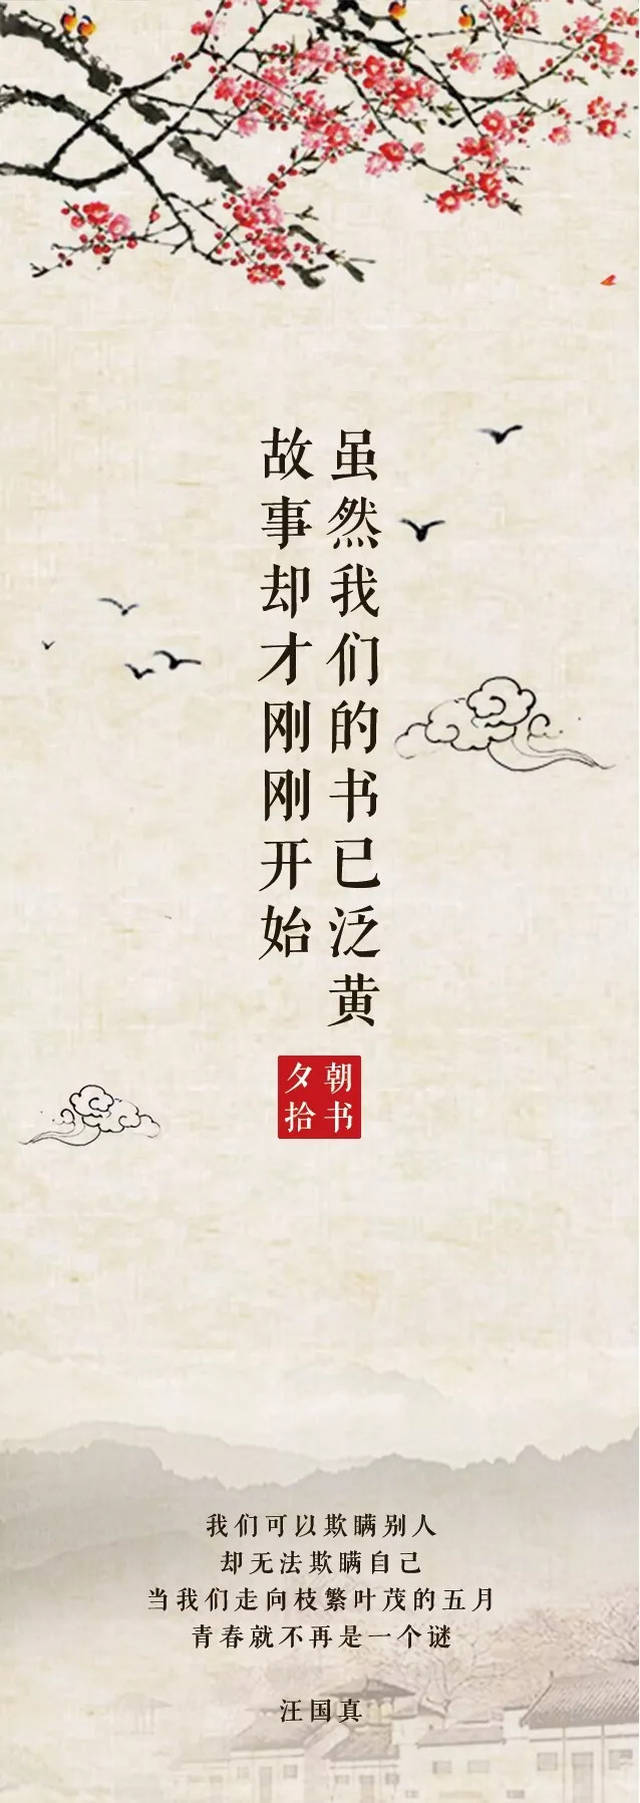 虽然我们的书已泛黄
故事却才刚刚开始
朝书
夕拾
我们可以欺瞒别人
却无法欺瞒自己
当我们走向枝繁叶茂的五月
青春就不再是一个谜
汪国真